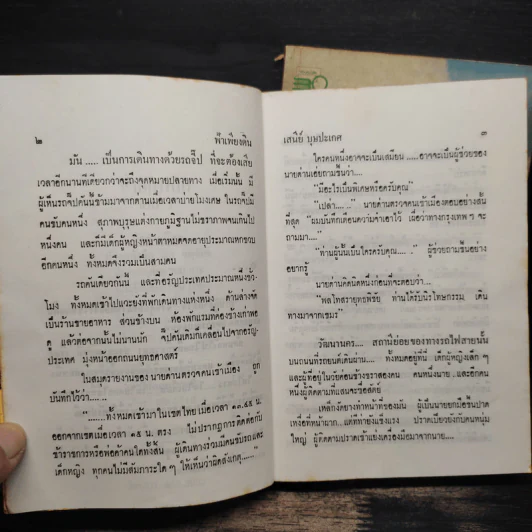 ๒ ฟ้าเพียงดิน
มัน ..... เป็นการเดินทางด้วยรถจี๊ป ที่จะต้องเสีย
เวลาอีกนานทีเดียวกว่าจะถึงจุดหมายปลายทาง เมื่อเริ่มนั้น มี
ผู้เห็นรถจี๊ปคันนี้ข้ามมาจากด่านเมื่อเวลาบ่ายโมงเศษ ในรถจี๊ปมี
คนขับคนหนึ่ง สุภาพบุรุษแต่งกายภูมิฐานไม่ชราภาพจนเกินไป
หนึ่งคน และก็มีเด็กผู้หญิงหน้าตาหมดจดอายุประมาณหกขวบ
อีกคนหนึ่ง ทั้งหมดจึงรวมเป็นสามคน
รถคันเดียวกันนี้ และที่อรัญประเทศประมาณหนึ่งชั่ว-
โมง ทั้งหมดเข้าไปแวะยังที่พักเดินทางแห่งหนึ่ง ด้านล่างจัด
เป็นร้านขายอาหาร ส่วนข้างบน ห้องพักแรมห้องข้างเก่าพอ
ดู แล้วต่อจากนั้นไม่นานนัก จี๊ปคันเดิมก็เคลื่อนไปจากอรัญ-
ประเทศ มุ่งหน้าออกถนนยุทธศาสตร์
ในสมุดรายงานของ นายด่านตรวจคนเข้าเมือง ถูก
บันทึกไว้ว่า.....
".......ทั้งหมดเข้ามาในเขตไทย เมื่อเวลา ๑๓.๔๕ น.
ออกจากเขตเมื่อเวลา ๑๕ น. ตรง ไม่ปรากฏการติดต่อกับ
ข้าราชการหรือพ่อค้าคนใดทั้งสิ้น ผู้เดินทางรวมมีคนขับรถและ
เด็กหญิง ทุกคนไม่มีสัมภาระใด ๆ ให้เห็นว่าผิดสังเกตุ......"
เสนีย์ บุษปะเกศ ๓
ใครคนหนึ่งอาจจะเป็นเสมียน .....อาจจะเป็นผู้ช่วยของ
นายด่านเอ่ยถามขึ้นว่า
"มีอะไรเป็นพิเศษหรือครับคุณ"
"เปล่า......" นายด่านตรวจคนเข้าเมืองตอบอย่างสั้น
ที่สุด "ผมบันทึกเตือนความจำเอาไว้ เผื่อว่าทางกรุงเทพ ๆ จะ
ถามมา...."
"ท่านผู้นั้นเป็นใครครับคุณ.... ." ผู้ช่วยถามขึ้นอย่าง
อยากรู้
นายด่านคิดนิดหนึ่งก่อนที่จะตอบว่า...
"พลโทสรายุทธพิชัย ท่านได้รับนิรโทษกรรม เดิน
ทางมาจากเขมร"
วัฒนานคร.... สถานีย่อยของทางรถไฟสายนั้น
บนถนนที่รถยนต์เดินผ่าน.... ทั้งหมดอยู่ที่นี่ เด็กผู้หญิงเล็ก ๆ
และผู้ที่อยู่ในวัยค่อนข้างชราสองคน คนหนึ่งนาย...และอีกคน
หนึ่งผู้ติดตามที่แสนจะซื่อสัตย์
เหล็กงัดยางทำหน้าที่ของมัน ผู้เป็นนายยกมือขึ้นปาด
เหงื่อที่หน้าผาก....แต่ที่ทำยังแข็งแรง ปราดเปรียวยิ่งกับคนหนุ่ม
ใหญ่ ผู้ติดตามปราดเข้าแย่งเครื่องมือมาจากนาย....